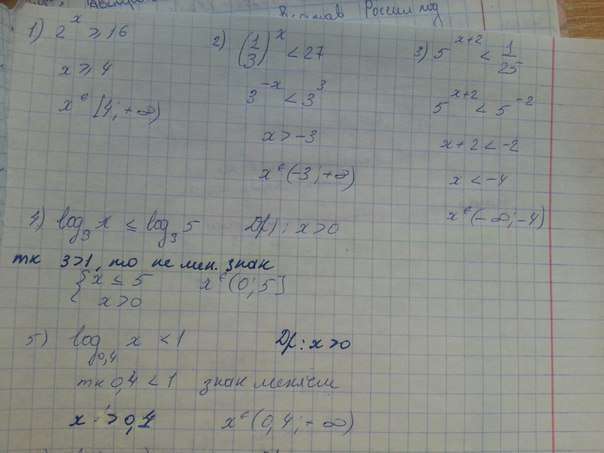 в состав России под
1) 2^x ≥ 16
x ≥ 4
x ∈ [4; +∞)
2) (1/3)^x < 27
3^-x < 3^3
x > -3
x ∈ (-3; +∞)
3) 5^x+2 < 1/25
5^x+2 < 5^-2
x+2 < -2
x < -4
x ∈ (-∞; -4)
4) log_3 x ≤ log_3 5 D(f): x > 0
тк 3>1, то не мен. знак
{ x ≤ 5
x > 0
x ∈ (0; 5]
5) log_0,4 x < 1 Df: x > 0
тк 0,4 < 1 знак меняем
x > 0,4 x ∈ (0,4; +∞)